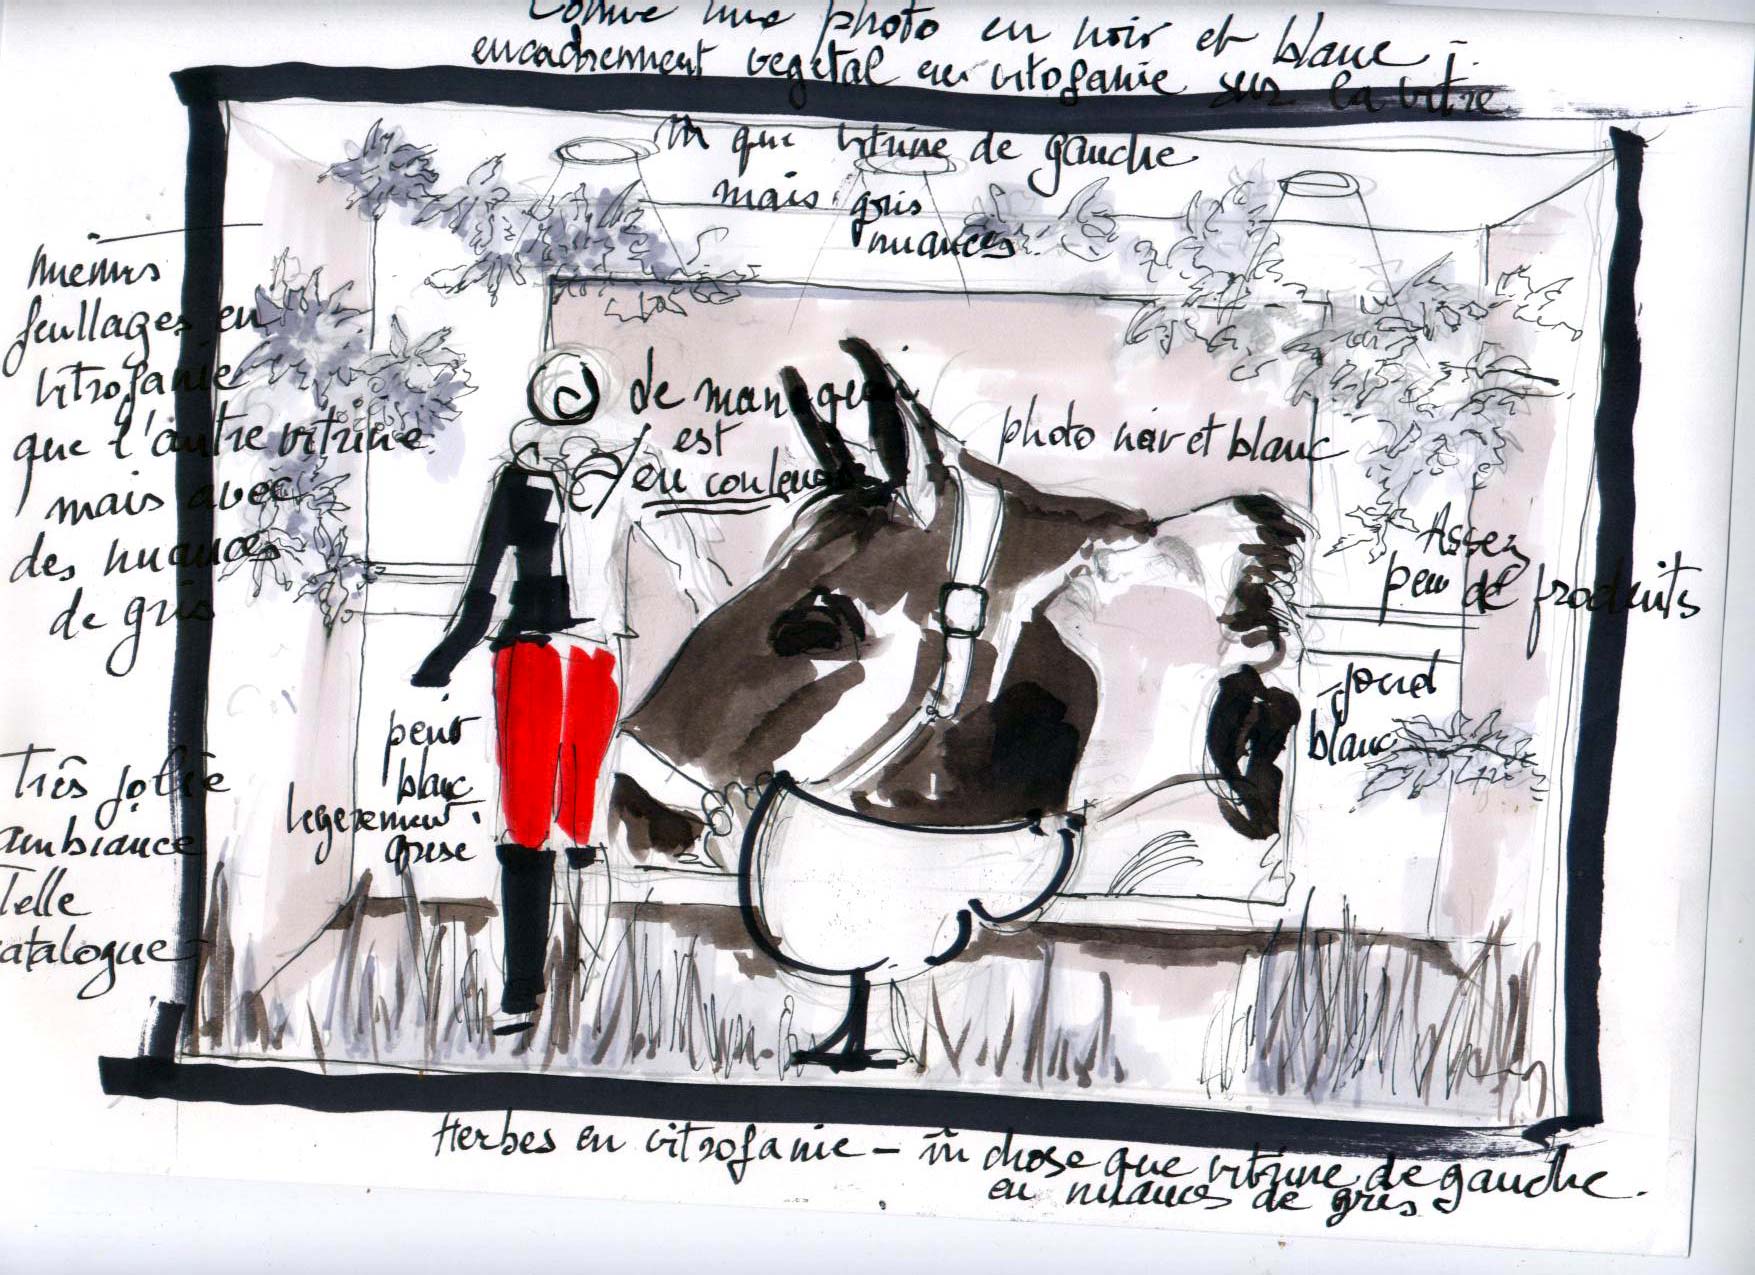 Comme une photo en noir et blanc -
encadrement vegetal en vitrofanie sur la vitre
m̄ que vitrine de gauche
mais gris
nuances
mêmes
feuillages en
vitrofanie
que l'autre vitrine
mais avec
des nuances
de gris
de mannequin
est
en couleur
photo noir et blanc
Assez
peu de produits
fond
blanc
peint
blanc
legerement
grise
Très jolie
ambiance
Telle
catalogue -
Herbes en vitrofanie - m̄ chose que vitrine de gauche.
en nuances de gris